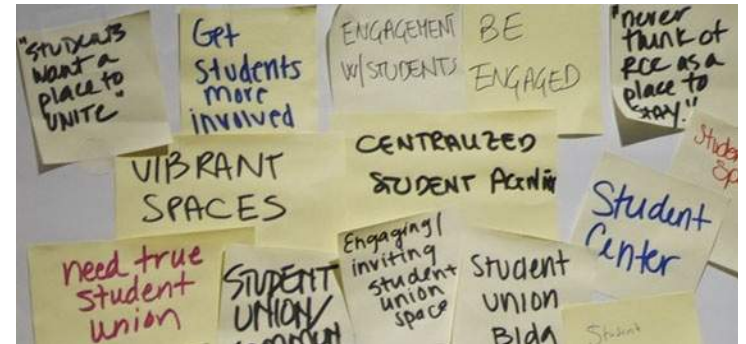 "STUDENTS
want a
place to
UNITE"
Get
Students
more
involved
ENGAGEMENT
W/STUDENTS
BE
ENGAGED
"never
think of
RCC as a
place to
STAY."
VIBRANT
SPACES
CENTRALIZED
STUDENT
Student
Center
need true
student
union
STUDENT
UNION/
Engaging/
inviting
student
union
space
Student
union
Bldg
Student